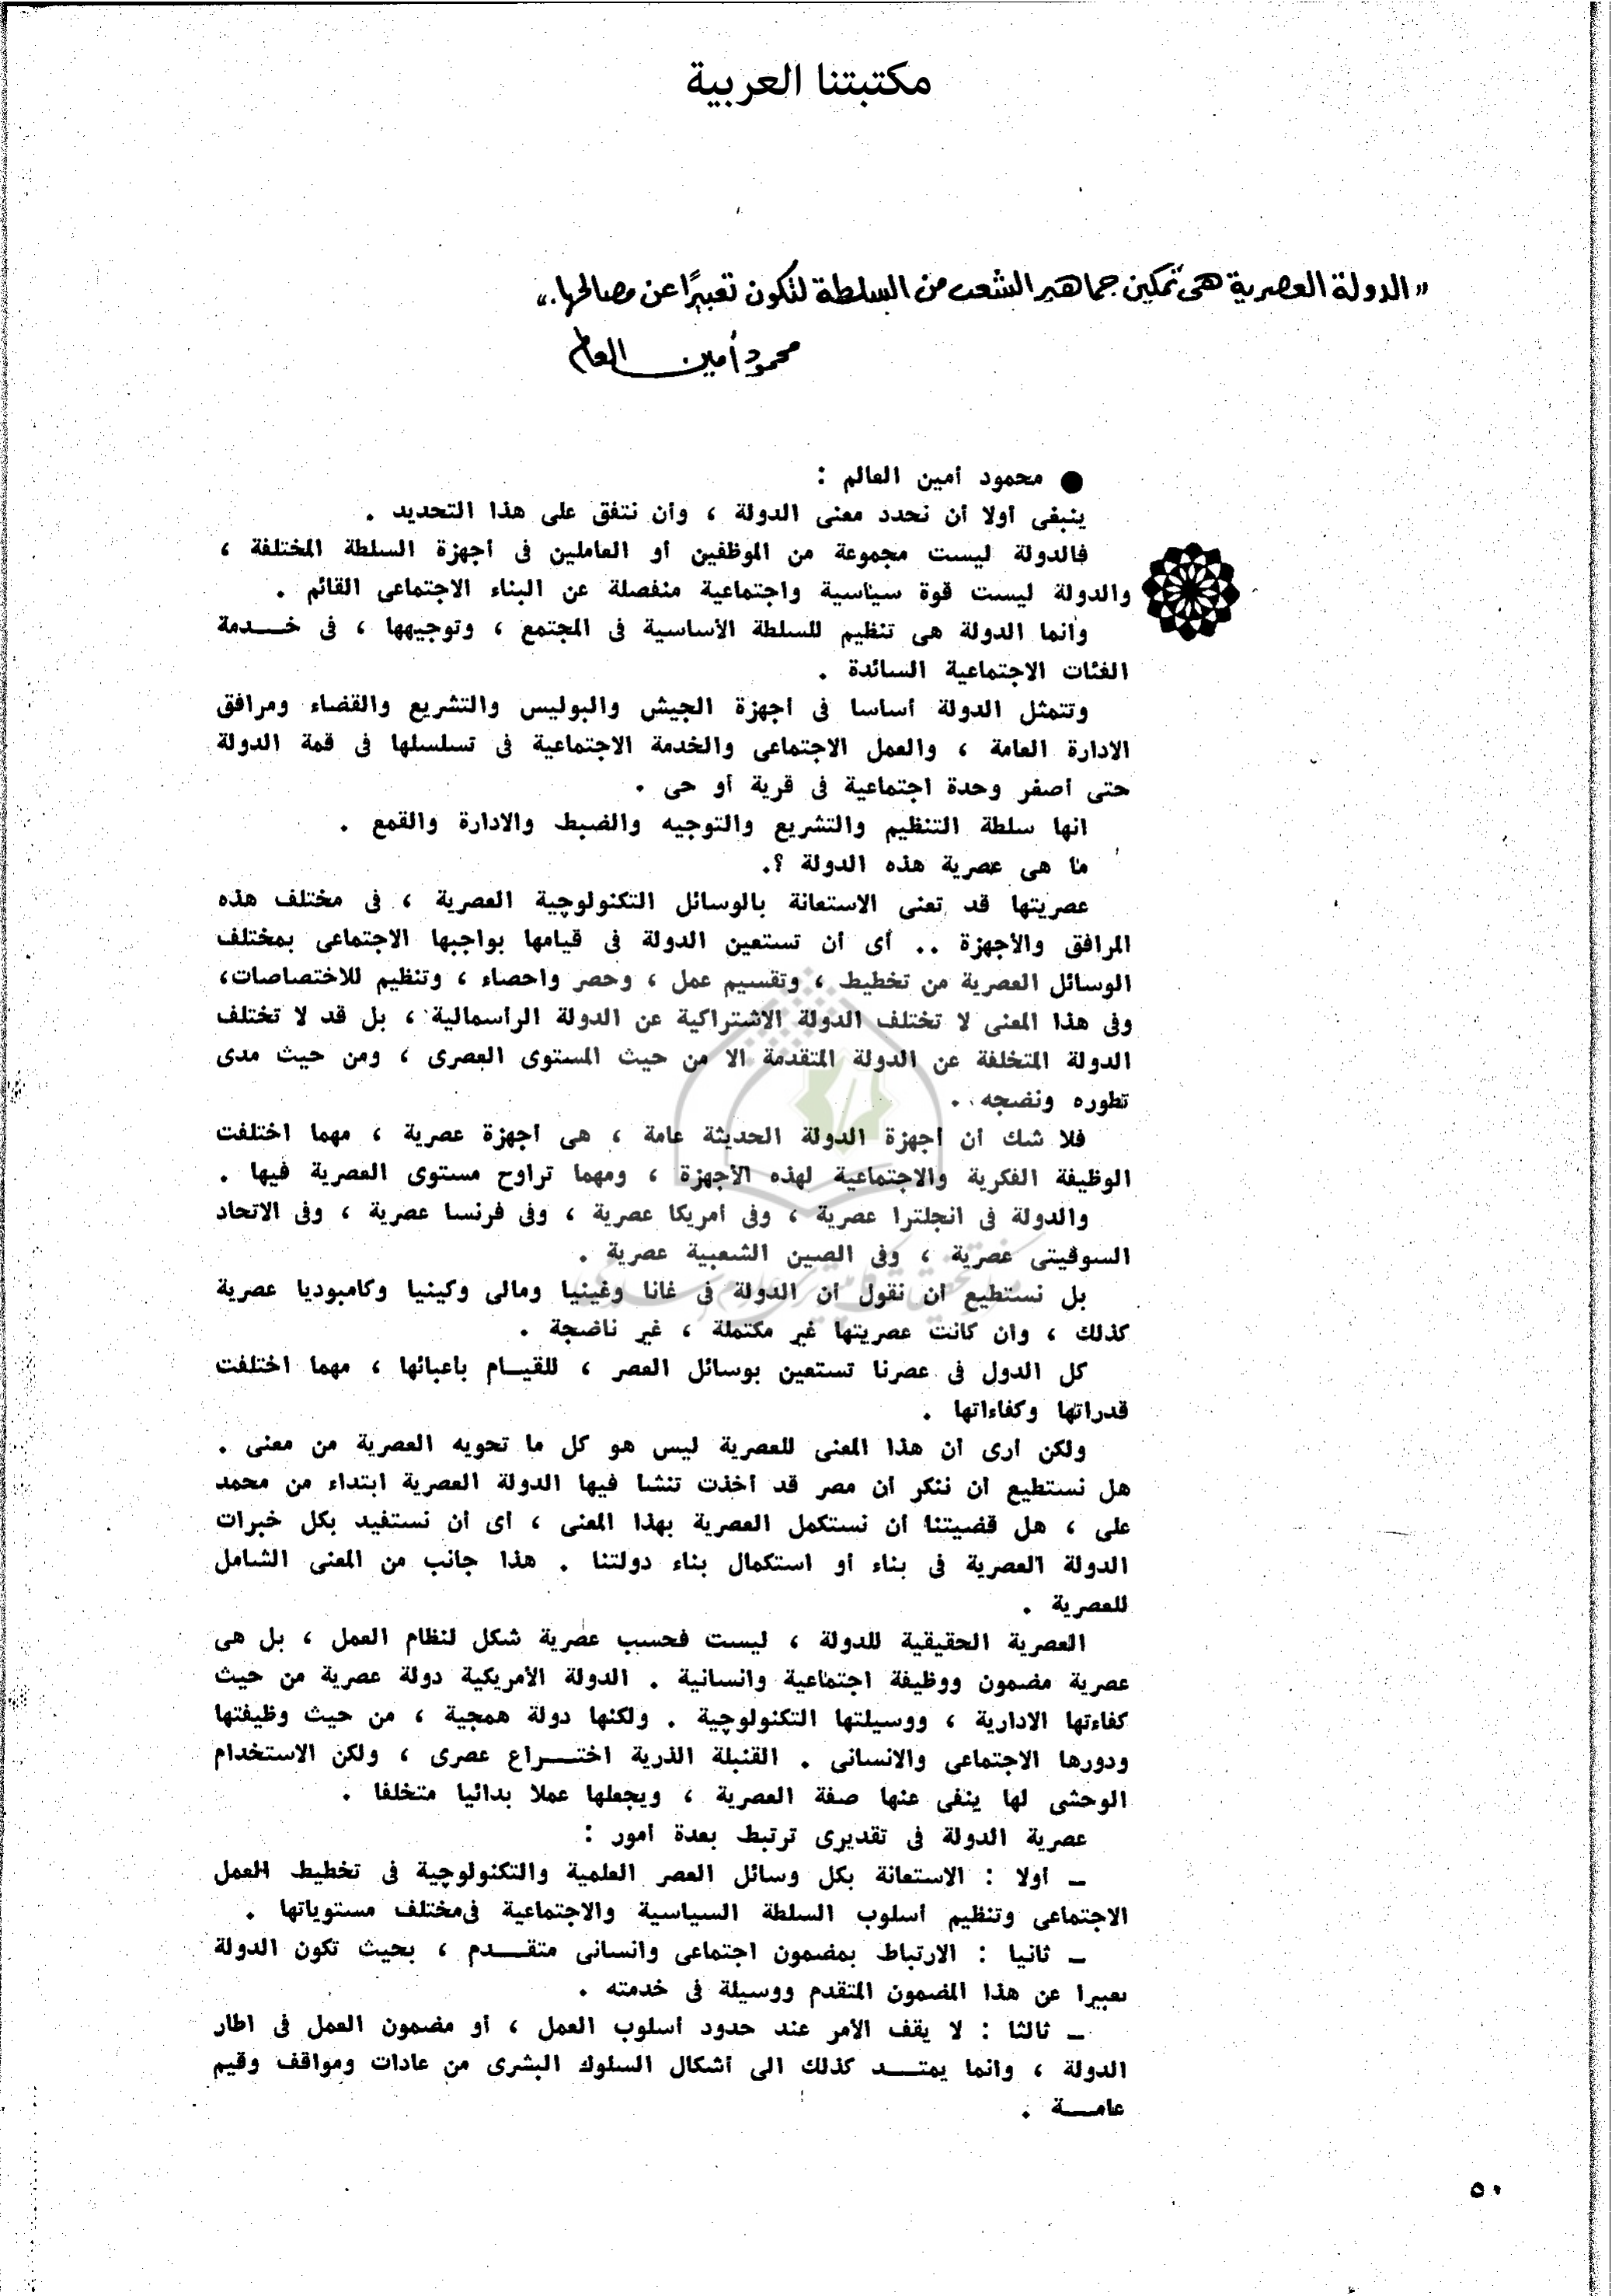 مكتبتنا العربية
« الدولة العصرية هى تمكين جماهير الشعب من السلطة لتكون تعبيرًا عن مصالحها. »
محمود أمين العالم
● محمود أمين العالم :
ينبغى أولا أن نحدد معنى الدولة ، وأن نتفق على هذا التحديد .
فالدولة ليست مجموعة من الموظفين أو العاملين فى أجهزة السلطة المختلفة ،
والدولة ليست قوة سياسية واجتماعية منفصلة عن البناء الاجتماعى القائم .
وانما الدولة هى تنظيم للسلطة الأساسية فى المجتمع ، وتوجيهها ، فى خـــدمة
الفئات الاجتماعية السائدة .
وتتمثل الدولة أساسا فى أجهزة الجيش والبوليس والتشريع والقضاء ومرافق
الادارة العامة ، والعمل الاجتماعى والخدمة الاجتماعية فى تسلسلها فى قمة الدولة
حتى أصغر وحدة اجتماعية فى قرية أو حى .
انها سلطة التنظيم والتشريع والتوجيه والضبط والادارة والقمع .
ما هى عصرية هذه الدولة ؟.
عصريتها قد تعنى الاستعانة بالوسائل التكنولوچية العصرية ، فى مختلف هذه
المرافق والأجهزة .. أى أن تستعين الدولة فى قيامها بواجبها الاجتماعى بمختلف
الوسائل العصرية من تخطيط ، وتقسيم عمل ، وحصر واحصاء ، وتنظيم للاختصاصات،
وفى هذا المعنى لا تختلف الدولة الاشتراكية عن الدولة الرأسمالية ، بل قد لا تختلف
الدولة المتخلفة عن الدولة المتقدمة الا من حيث المستوى العصرى ، ومن حيث مدى
تطوره ونضجه .
فلا شك أن أجهزة الدولة الحديثة عامة ، هى أجهزة عصرية ، مهما اختلفت
الوظيفة الفكرية والاجتماعية لهذه الأجهزة ، ومهما تراوح مستوى العصرية فيها .
والدولة فى انجلترا عصرية ، وفى أمريكا عصرية ، وفى فرنسا عصرية ، وفى الاتحاد
السوڤيتى عصرية ، وفى الصين الشعبية عصرية .
بل نستطيع أن نقول أن الدولة فى غانا وغينيا ومالى وكينيا وكامبوديا عصرية
كذلك ، وان كانت عصريتها غير مكتملة ، غير ناضجة .
كل الدول فى عصرنا تستعين بوسائل العصر ، للقيـــام بأعبائها ، مهما اختلفت
قدراتها وكفاءاتها .
ولكن أرى أن هذا المعنى للعصرية ليس هو كل ما تحويه العصرية من معنى .
هل نستطيع أن ننكر أن مصر قد أخذت تنشأ فيها الدولة العصرية ابتداء من محمد
على ، هل قضيتنا أن نستكمل العصرية بهذا المعنى ، أى أن نستفيد بكل خبرات
الدولة العصرية فى بناء أو استكمال بناء دولتنا . هذا جانب من المعنى الشامل
للعصرية .
العصرية الحقيقية للدولة ، ليست فحسب عصرية شكل لنظام العمل ، بل هى
عصرية مضمون ووظيفة اجتماعية وانسانية . الدولة الأمريكية دولة عصرية من حيث
كفاءتها الادارية ، ووسيلتها التكنولوچية . ولكنها دولة همجية ، من حيث وظيفتها
ودورها الاجتماعى والانسانى . القنبلة الذرية اختـــراع عصرى ، ولكن الاستخدام
الوحشى لها ينفى عنها صفة العصرية ، ويجعلها عملا بدائيا متخلفا .
عصرية الدولة فى تقديرى ترتبط بعدة أمور :
ـ أولا : الاستعانة بكل وسائل العصر العلمية والتكنولوچية فى تخطيط العمل
الاجتماعى وتنظيم أسلوب السلطة السياسية والاجتماعية فى مختلف مستوياتها .
ـ ثانيا : الارتباط بمضمون اجتماعى وانسانى متقـــدم ، بحيث تكون الدولة
تعبيرا عن هذا المضمون المتقدم ووسيلة فى خدمته .
ـ ثالثا : لا يقف الأمر عند حدود أسلوب العمل ، أو مضمون العمل فى اطار
الدولة ، وانما يمتـــد كذلك الى أشكال السلوك البشرى من عادات ومواقف وقيم
عامـــة .
٥٠